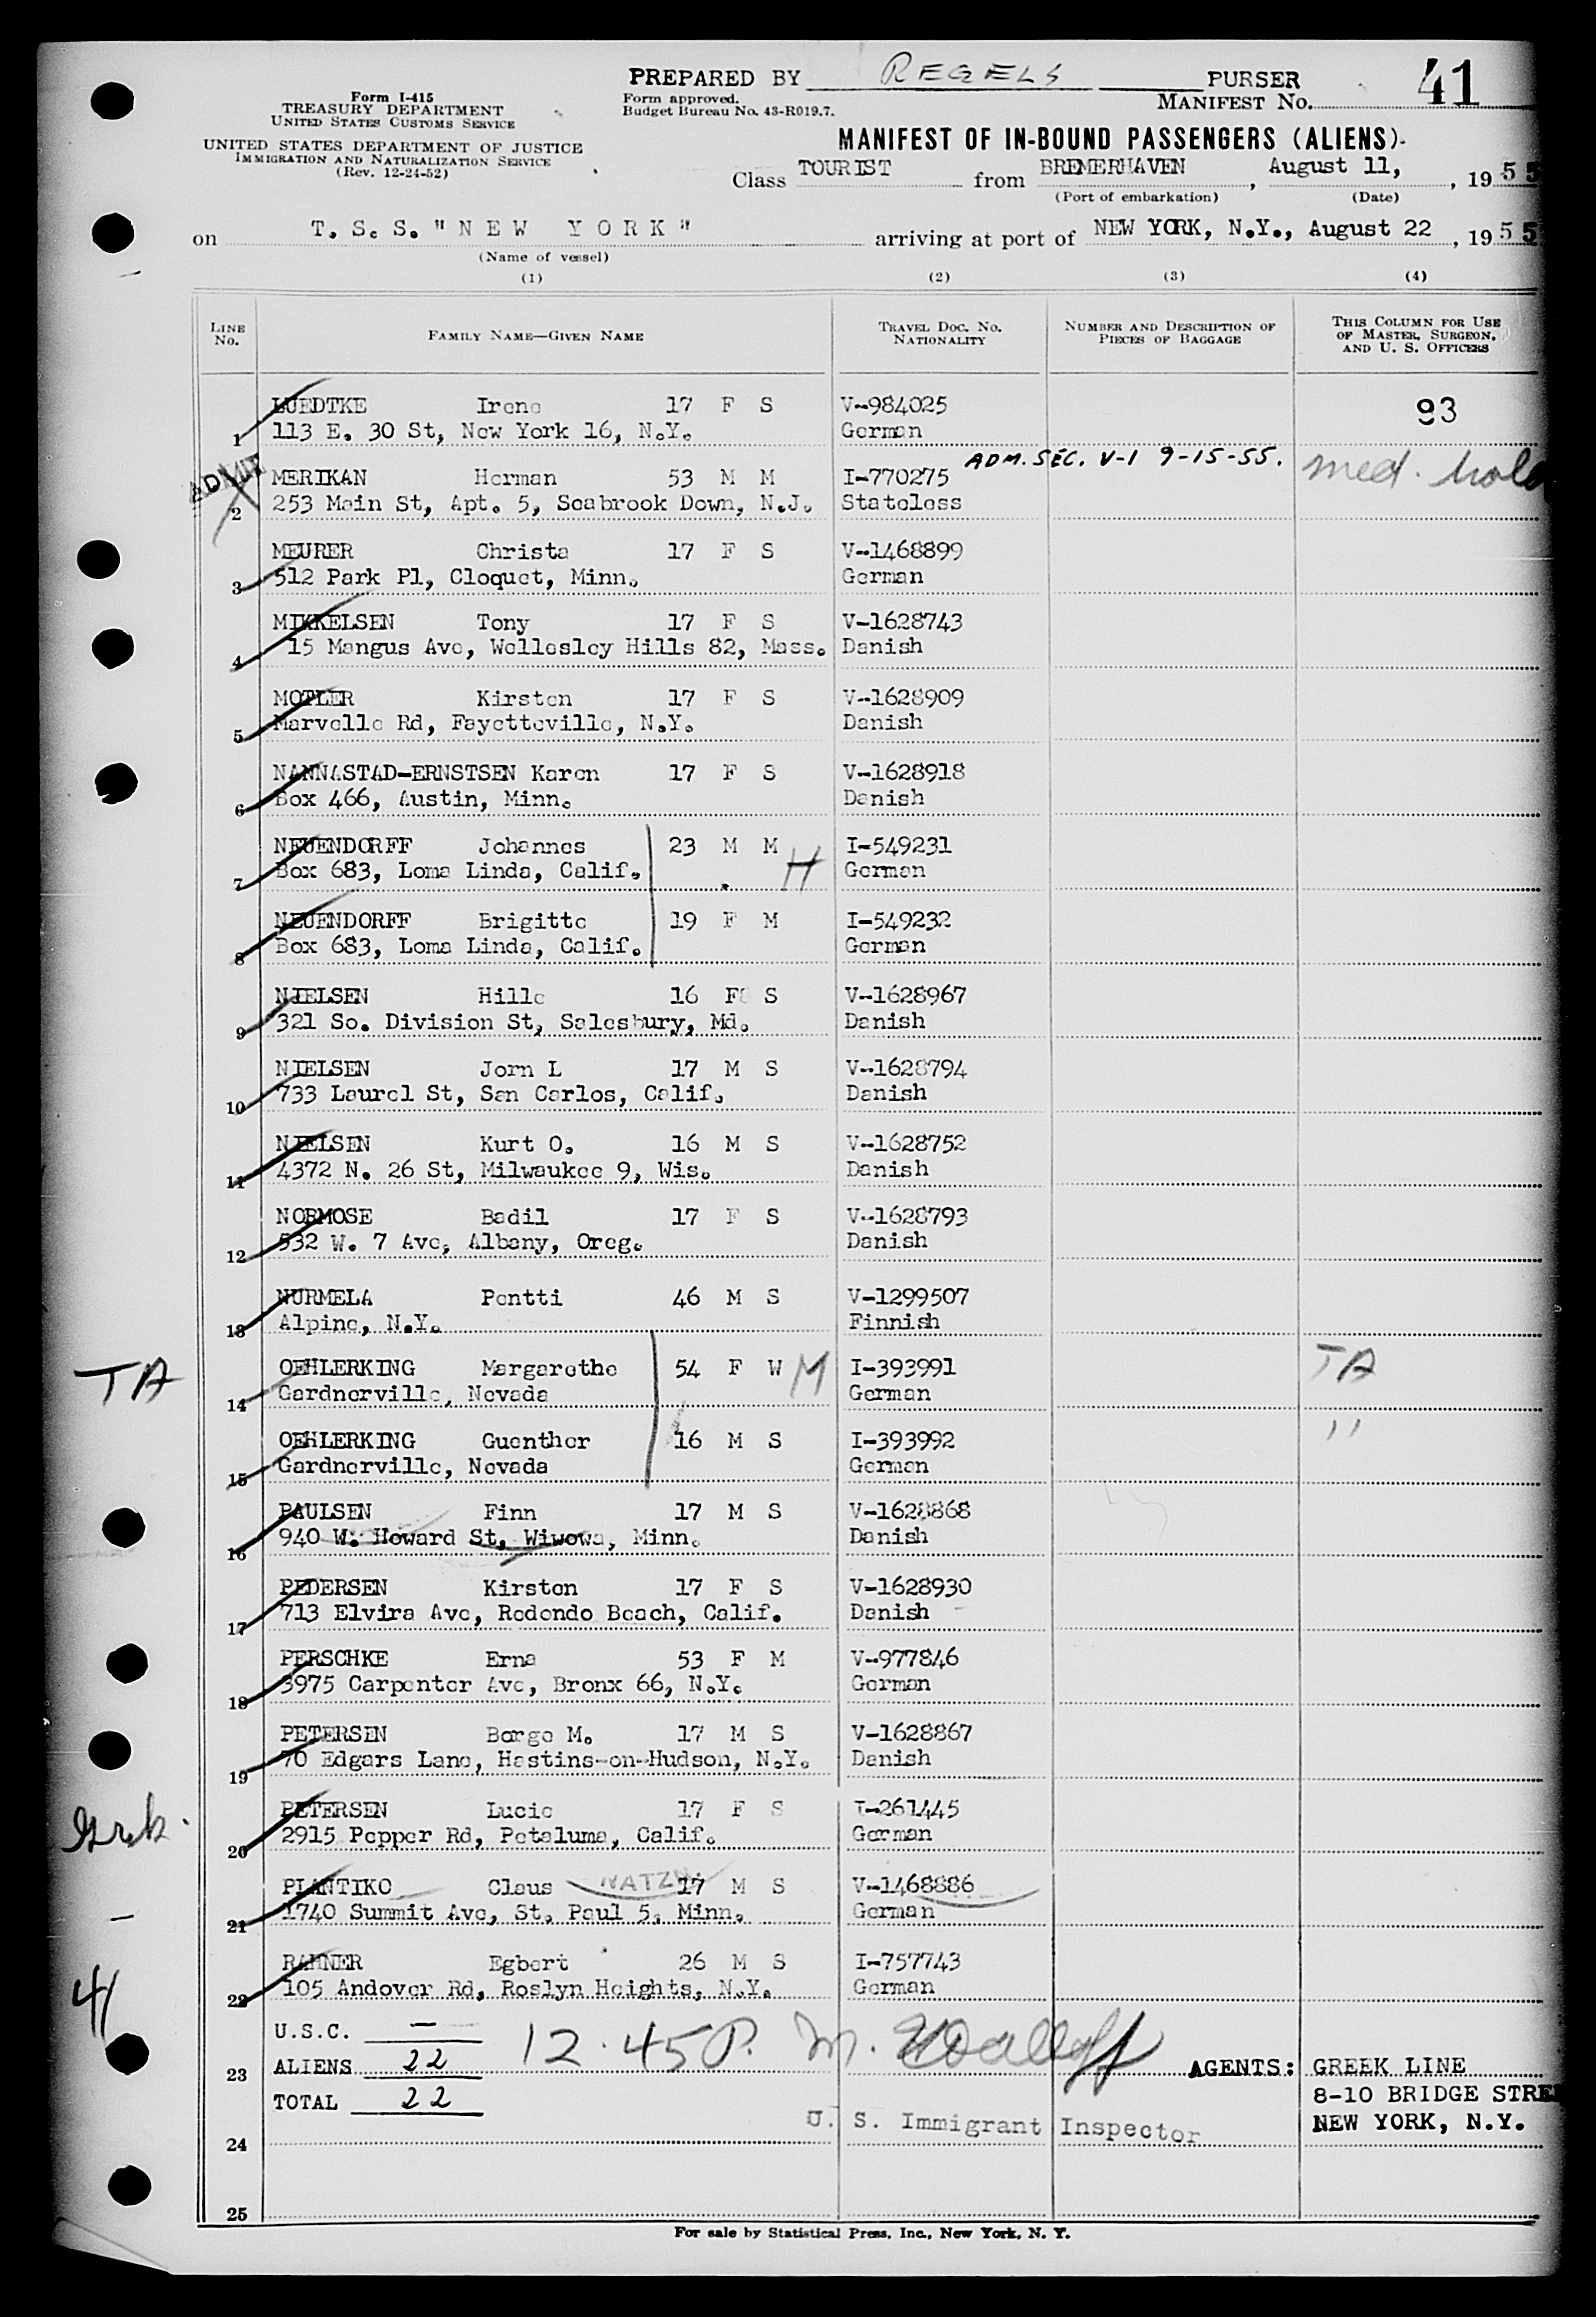 PREPARED BY REGELS PURSER
Form I-415
TREASURY DEPARTMENT
UNITED STATES CUSTOMS SERVICE
UNITED STATES DEPARTMENT OF JUSTICE
IMMIGRATION AND NATURALIZATION SERVICE
(Rev. 12-24-52)
Form approved.
Budget Bureau No. 43-R019.7.
MANIFEST NO. 41
MANIFEST OF IN-BOUND PASSENGERS (ALIENS)
Class TOURIST from BREMERHAVEN, August 11, 1955
(Port of embarkation) (Date)
on T. S. S. "NEW YORK" arriving at port of NEW YORK, N.Y., August 22, 1955
(Name of vessel)
(1) (2) (3) (4)
LINE NO. FAMILY NAME—GIVEN NAME TRAVEL DOC. NO. NATIONALITY NUMBER AND DESCRIPTION OF PIECES OF BAGGAGE THIS COLUMN FOR USE OF MASTER, SURGEON, AND U. S. OFFICERS
LUEDTKE Irene 17 F S V-984025 93
1 113 E. 30 St, New York 16, N.Y. German
ADM. SEC. V-1 9-15-55.
ADMIT MERIKAN Herman 53 M M I-770275 med. hold
2 253 Main St, Apt. 5, Seabrook Down, N.J. Stateless
MEURER Christa 17 F S V-1468899
3 512 Park Pl, Cloquet, Minn. German
MIKKELSEN Tony 17 F S V-1628743
4 15 Mangus Ave, Wellesley Hills 82, Mass. Danish
MOTLER Kirsten 17 F S V-1628909
5 Marvelle Rd, Fayetteville, N.Y. Danish
NANNASTAD-ERNSTSEN Karen 17 F S V-1628918
6 Box 466, Austin, Minn. Danish
NEUENDORFF Johannes 23 M M H I-549231
7 Box 683, Loma Linda, Calif. German
NEUENDORFF Brigitte 19 F M I-549232
8 Box 683, Loma Linda, Calif. German
NIELSEN Hille 16 F S V-1628967
9 321 So. Division St, Salesbury, Md. Danish
NIELSEN Jorn L 17 M S V-1628794
10 733 Laurel St, San Carlos, Calif. Danish
NIELSEN Kurt O. 16 M S V-1628752
11 4372 N. 26 St, Milwaukee 9, Wis. Danish
NORMOSE Badil 17 F S V-1628793
12 532 W. 7 Ave, Albany, Oreg. Danish
NURMELA Pentti 46 M S V-1299507
13 Alpine, N.Y. Finnish
TA OEHLERKING Margarethe 54 F W M I-393991 TA
14 Gardnerville, Nevada German
OEHLERKING Guenther 16 M S I-393992 "
15 Gardnerville, Nevada German
PAULSEN Finn 17 M S V-1628868
16 940 W. Howard St, Wiwowa, Minn. Danish
PEDERSEN Kirsten 17 F S V-1628930
17 713 Elvira Ave, Redondo Beach, Calif. Danish
PERSCHKE Erna 53 F M V-977846
18 3975 Carpenter Ave, Bronx 66, N.Y. German
PETERSEN Borge M. 17 M S V-1628867
19 70 Edgars Lane, Hastins-on-Hudson, N.Y. Danish
PETERSEN Lucie 17 F S I-261445
20 2915 Pepper Rd, Petaluma, Calif. German
PLANTIKO Claus 17 M S V-1468886
21 1740 Summit Ave, St. Paul 5, Minn. German
RAHNER Egbert 26 M S I-757743
41
22 105 Andover Rd, Roslyn Heights, N.Y. German
U.S.C. —
12.45 P. M.
23 ALIENS 22 AGENTS: GREEK LINE
TOTAL 22 8-10 BRIDGE STREE
U. S. Immigrant Inspector NEW YORK, N.Y.
24
25
For sale by Statistical Press, Inc., New York, N. Y.